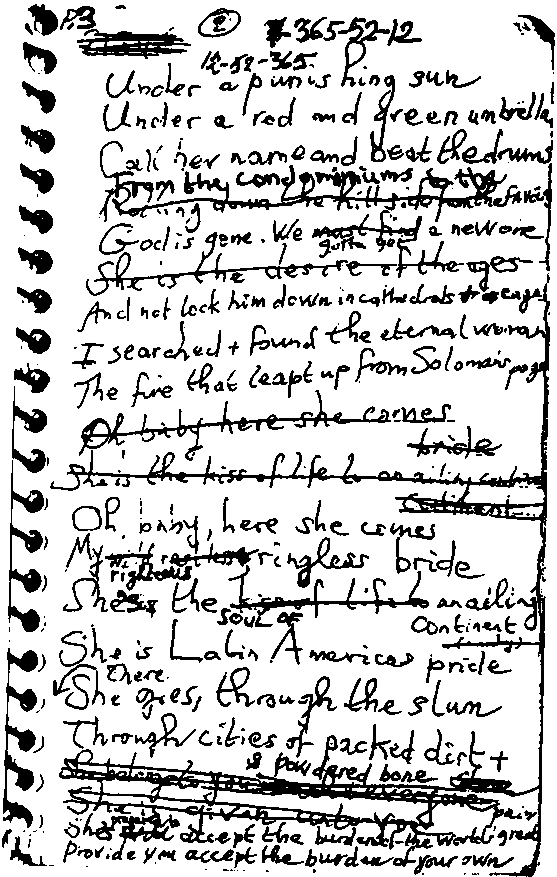 P.3 2 365-52-12
12-52-365
Under a punishing sun
Under a red and green umbrella
Call her name and beat the drums
From the condominiums to the
Rolling down the hill side from the favelas
God is gone. We must find a new one
gotta get
She is the desire of the ages
And not lock him down in cathedrals
I searched + found the eternal woman
The fire that leapt up from Solomon's page
Oh baby here she comes
bride
She is the kiss of life to an ailing continent
Continent
Oh, baby, here she comes
My ringless bride
righteous
She is the kiss of life to an ailing
SOUL OF
Continent
She is Latin Americas pride
There
She goes, through the slum
Through cities of packed dirt +
& powdered bone
She belongs to you everyone
She is given unto you pain
She accept the burden of the world's great
Provide you accept the burden of your own